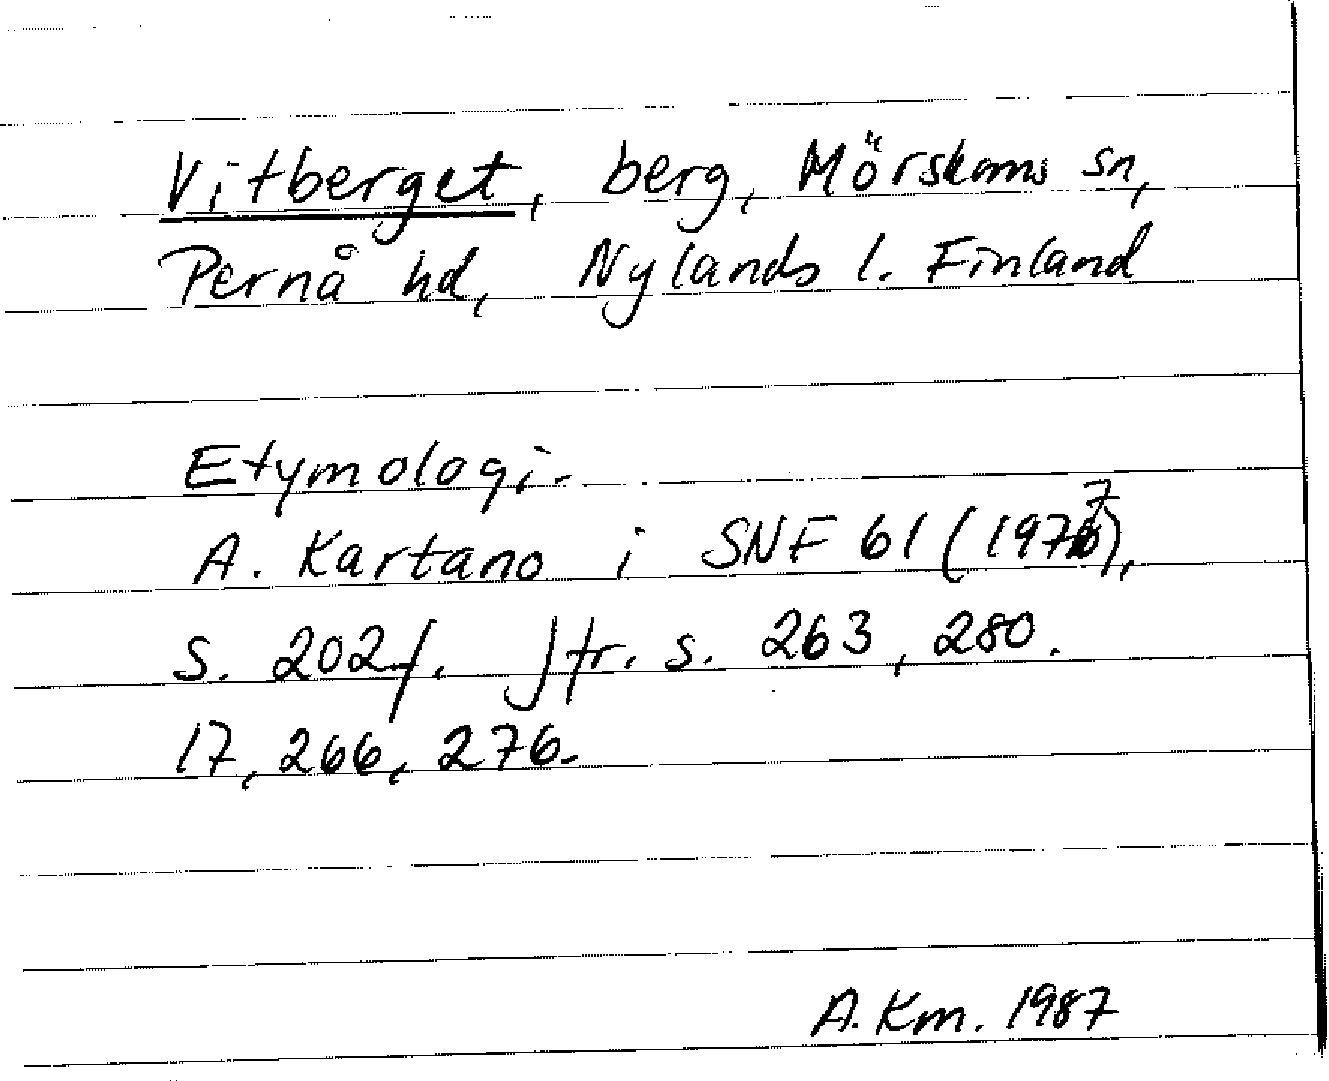 Vitberget, berg, Mörskoms sn,
Pernå hd, Nylands l. Finland
Etymologi.
A. Kartano i SNF 61 (1977),
s. 202f. Jfr. s. 263, 280.
17, 266, 276.
A. Km. 1987